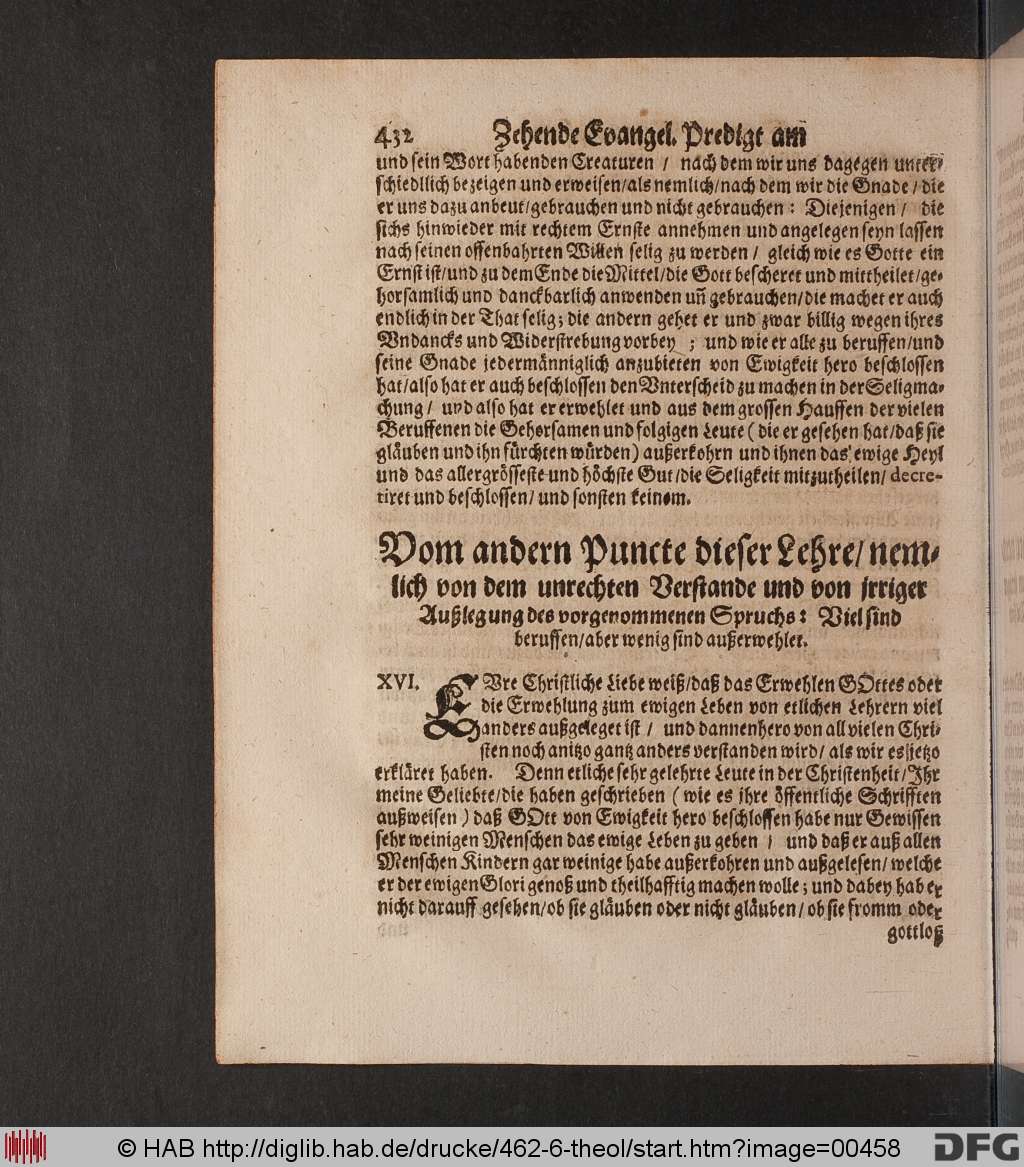 432 Zehende Evangel. Predigt am
und sein Wort habenden Creaturen / nach dem wir uns dagegen unter-
schiedllich bezeigen und erweisen/als nemlich/nach dem wir die Gnade / die
er uns dazu anbeut/gebrauchen und nicht gebrauchen: Diejenigen / die
sichs hinwieder mit rechtem Ernste annehmen und angelegen seyn lassen
nach seinen offenbahrten Willen selig zu werden / gleich wie es Gotte ein
Ernst ist/und zu dem Ende die Mittel/die Gott bescheret und mittheilet/ge-
horsamlich und danckbarlich anwenden uñ gebrauchen/die machet er auch
endlich in der That selig; die andern gehet er und zwar billig wegen ihres
Vndancks und Widerstrebung vorbey ; und wie er alle zu beruffen/und
seine Gnade jedermänniglich anzubieten von Ewigkeit hero beschlossen
hat/also hat er auch beschlossen den Vnterscheid zu machen in der Seligma-
chung / und also hat er erwehlet und aus dem grossen Hauffen der vielen
Beruffenen die Gehorsamen und folgigen Leute ( die er gesehen hat/daß sie
gläuben und ihn fürchten würden) außerkohrn und ihnen das ewige Heyl
und das allergrösseste und höchste Gut/die Seligkeit mitzutheilen/ decre-
tiret und beschlossen/ und sonsten keinem.
Vom andern Puncte dieser Lehre/ nem-
lich von dem unrechten Verstande und von irriger
Außlegung des vorgenommenen Spruchs: Viel sind
beruffen/aber wenig sind außerwehlet.
XVI. EVre Christliche Liebe weiß/daß das Erwehlen GOttes oder
die Erwehlung zum ewigen Leben von etlichen Lehrern viel
anders außgeleget ist / und dannenhero von all vielen Chri-
sten noch anitzo gantz anders verstanden wird/ als wir es jetzo
erkläret haben. Denn etliche sehr gelehrte Leute in der Christenheit/Ihr
meine Geliebte/die haben geschrieben ( wie es ihre öffentliche Schrifften
außweisen ) daß GOtt von Ewigkeit hero beschlossen habe nur Gewissen
sehr weinigen Menschen das ewige Leben zu geben / und daß er auß allen
Menschen Kindern gar weinige habe außerkohren und außgelesen/ welche
er der ewigen Glori genoß und theilhafftig machen wolle; und dabey hab er
nicht darauff gesehen/ob sie gläuben oder nicht gläuben/ ob sie fromm oder
gottloß
© HAB http://diglib.hab.de/drucke/462-6-theol/start.htm?image=00458
DFG